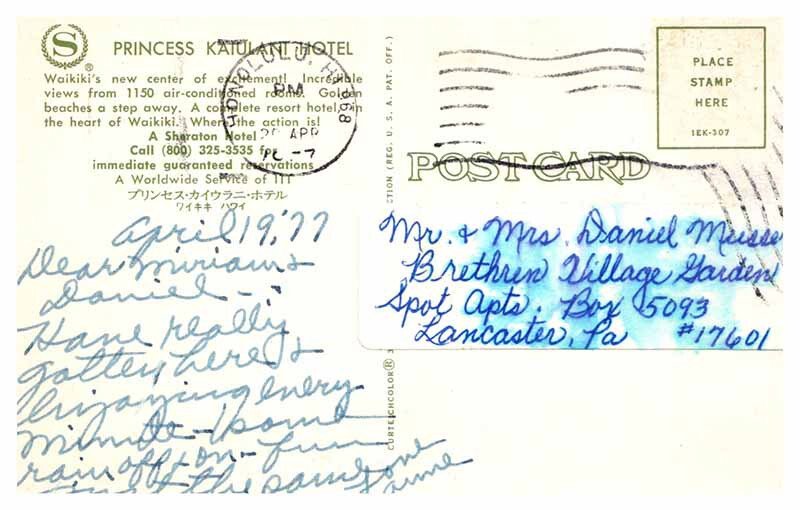 S
®
PRINCESS KAIULANI HOTEL
Waikiki's new center of excitement! Incredible
views from 1150 air-conditioned rooms. Golden
beaches a step away. A complete resort hotel, in
the heart of Waikiki. Where the action is!
A Sheraton Hotel
Call (800) 325-3535 for
immediate guaranteed reservations
A Worldwide Service of ITT
プリンセス・カイウラニ・ホテル
ワイキキ ハワイ
HONOLULU, HI 968
PM
20 APR
April 19, '77
Dear Miriam &
Daniel -
Have really
gotten here &
enjoying every
minute - some
rain off & on - fun
just the same
CTION (REG. U. S. A. PAT. OFF.)
CURTEICHCOLOR® 3
PLACE
STAMP
HERE
1EK-307
POST CARD
Mr. & Mrs. Daniel
Brethrin Village Garden
Spot Apts. Box 5093
Lancaster, Pa #17601